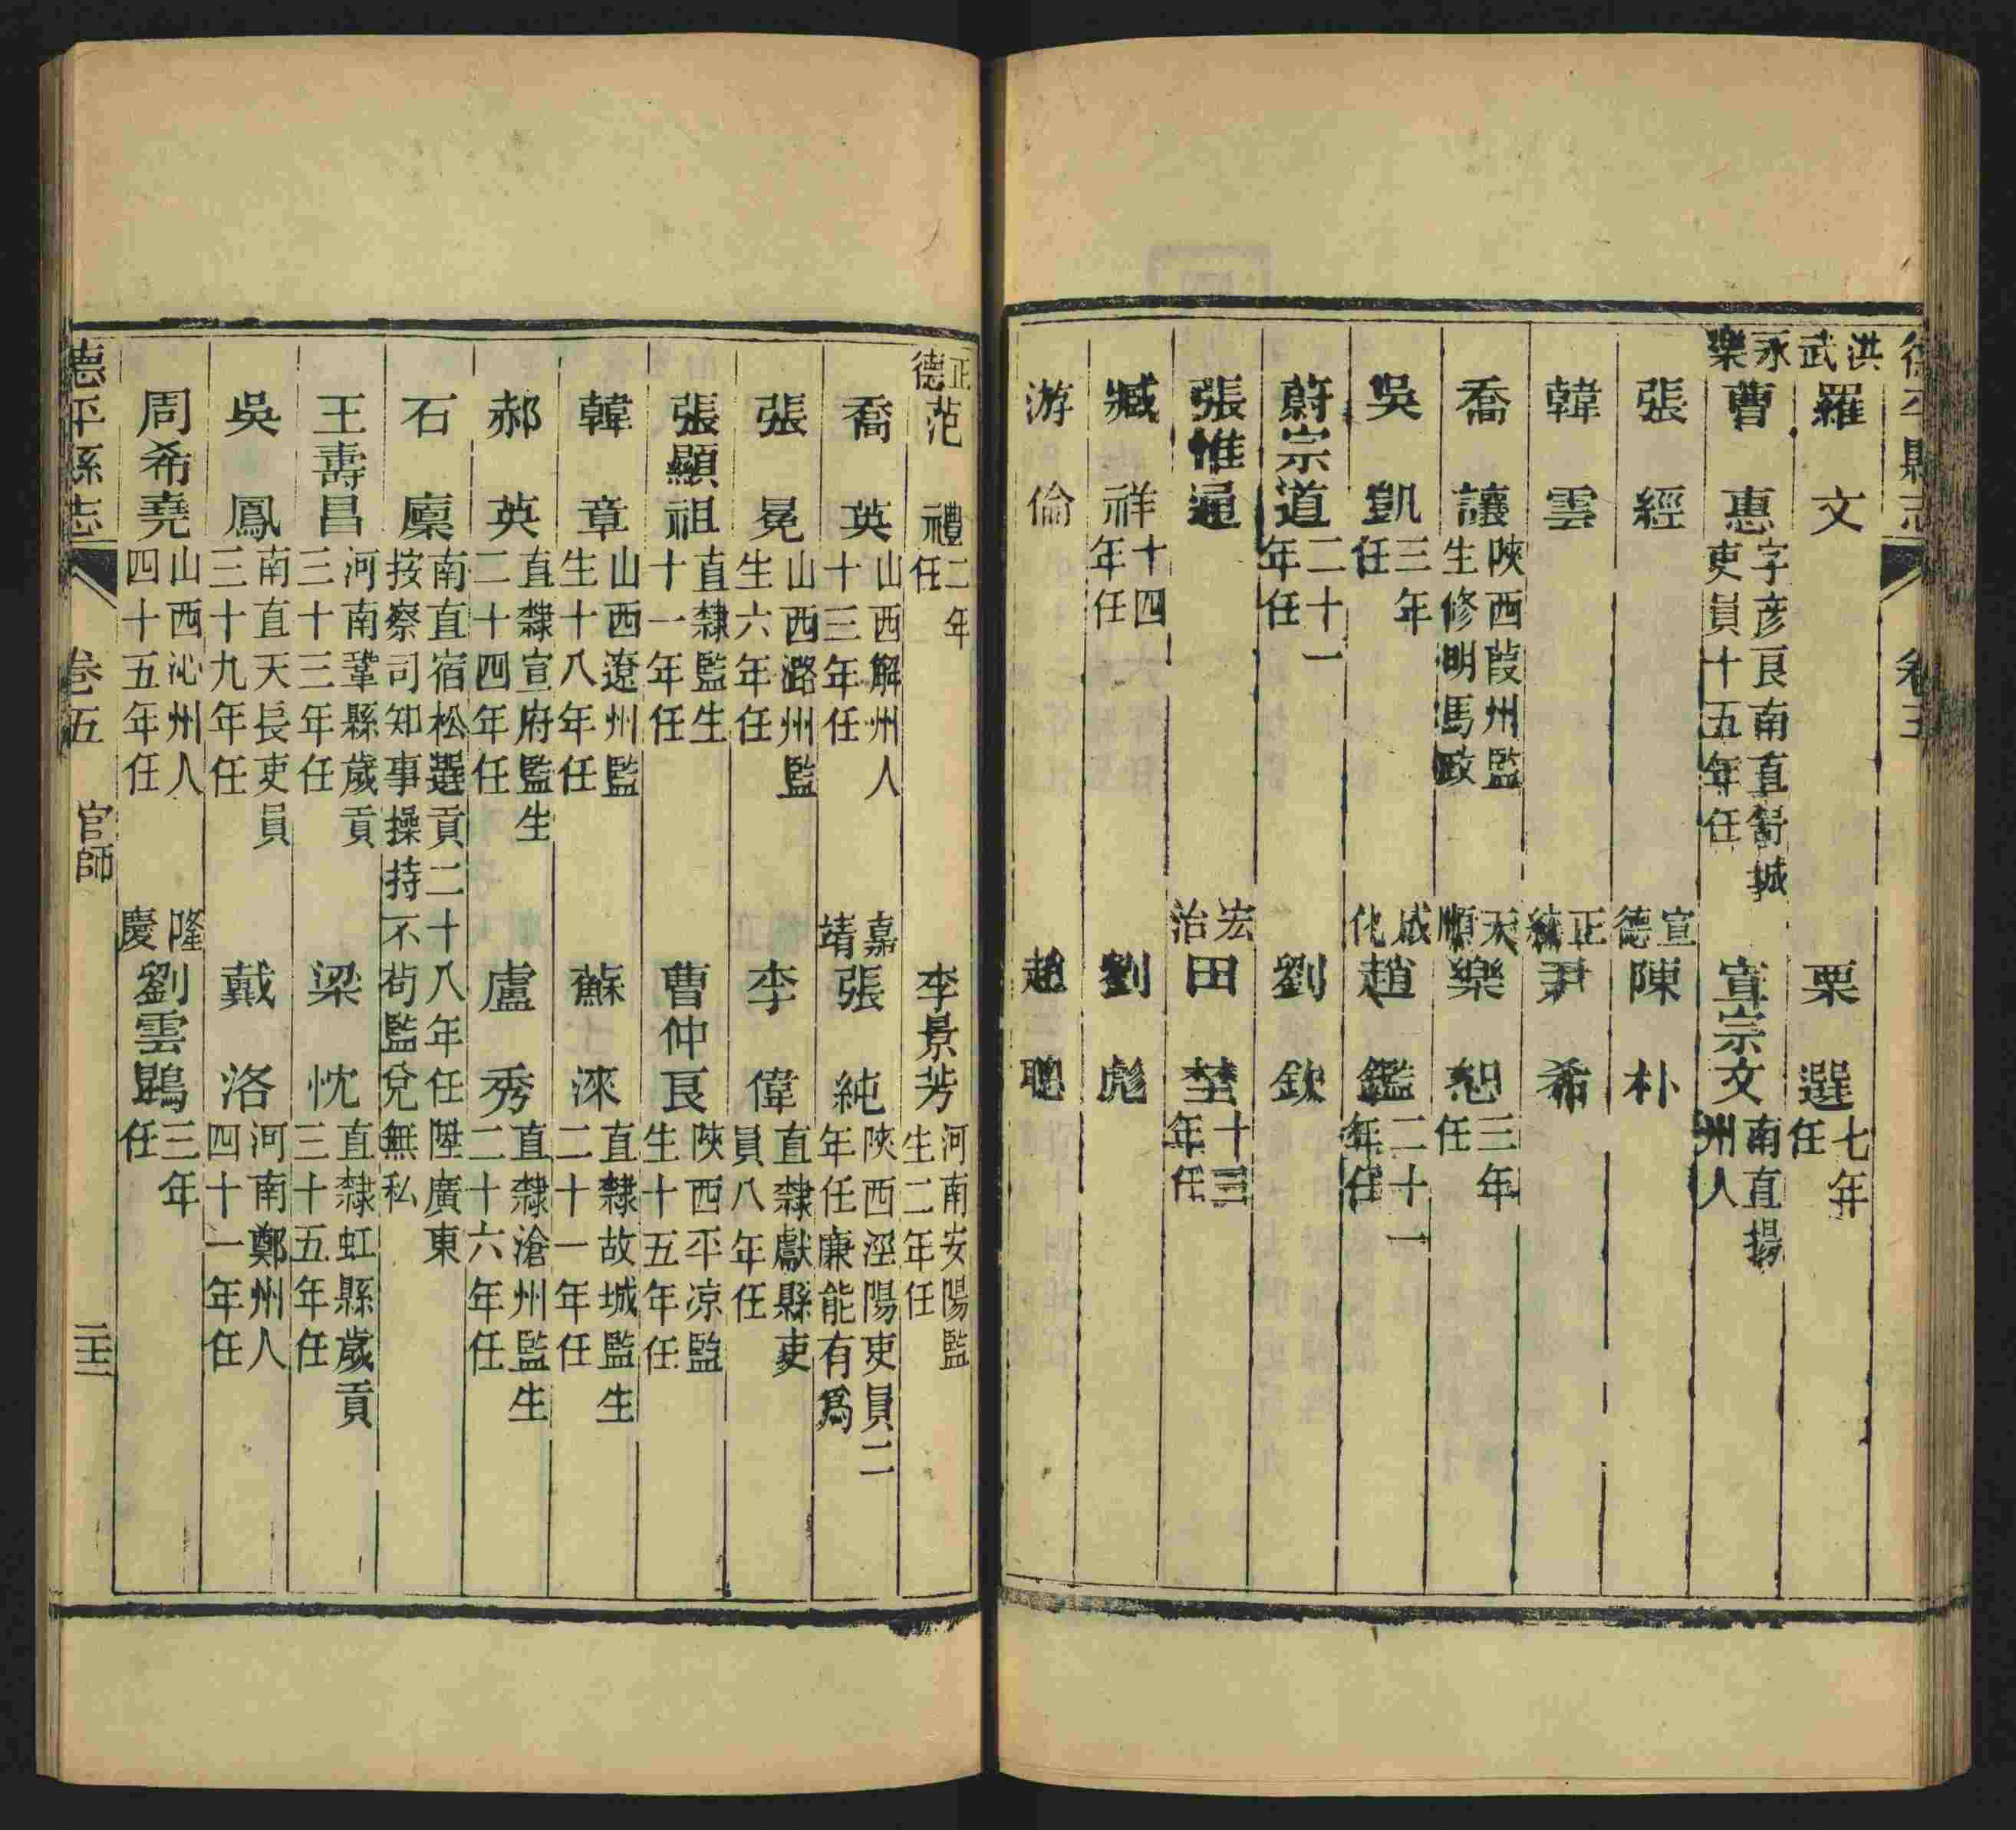 德平縣志 卷五
洪武 羅文 栗選 七年任
永樂 曹惠 字彥良南直舒城吏員十五年任 宣宗文 南直揚州人
張經 宣德 陳朴
韓雲 正統 尹希
喬讓 陝西葭州監生修明馬政 天順 樂恕 三年任
吳凱 三年任 成化 趙鑑 二十一年任
蔚宗道 二十一年任 劉欽
張惟通 宏治 田埜 十三年任
臧祥 十四年任 劉彪
游倫 趙聰
正德 范禮 二年任 李景芳 河南安陽監生二年任
喬英 山西解州人十三年任 嘉靖 張純 陝西涇陽吏員二年任廉能有為
張冕 山西潞州監生六年任 李偉 直隸獻縣吏員八年任
張顯祖 直隸監生十一年任 曹仲良 陝西平凉監生十五年任
韓章 山西遼州監生十八年任 蘇淶 直隸故城監生二十一年任
郝英 直隸宣府監生二十四年任 盧秀 直隸滄州監生二十六年任
石廩 南直宿松選貢二十八年任陞廣東按察司知事操持不茍監兌無私
王壽昌 河南鞏縣歲貢三十三年任 梁忱 直隸虹縣歲貢三十五年任
吳鳳 南直天長吏員三十九年任 戴洛 河南鄭州人四十一年任
周希堯 山西沁州人四十五年任 隆慶 劉雲鵾 三年任
德平縣志 卷五 官師 二十三